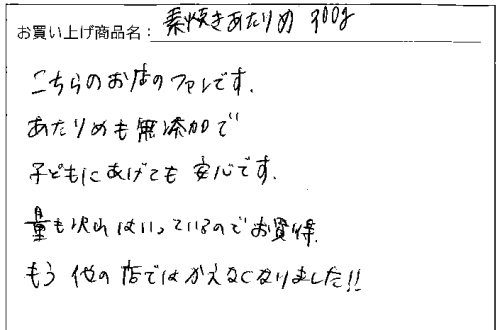 お買い上げ商品名：素焼きあたりめ 300g
こちらのお店のファンです.
あたりめも無添加で
子どもにあげても安心です.
量も沢山はいっているのでお買得.
もう他の店ではかえなくなりました!!